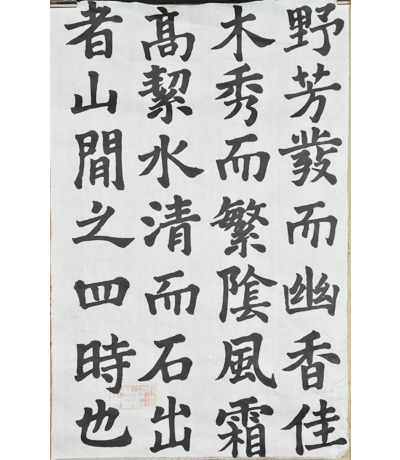 野芳發而幽香佳
木秀而繁陰風霜
高絜水清而石出
者山間之四時也